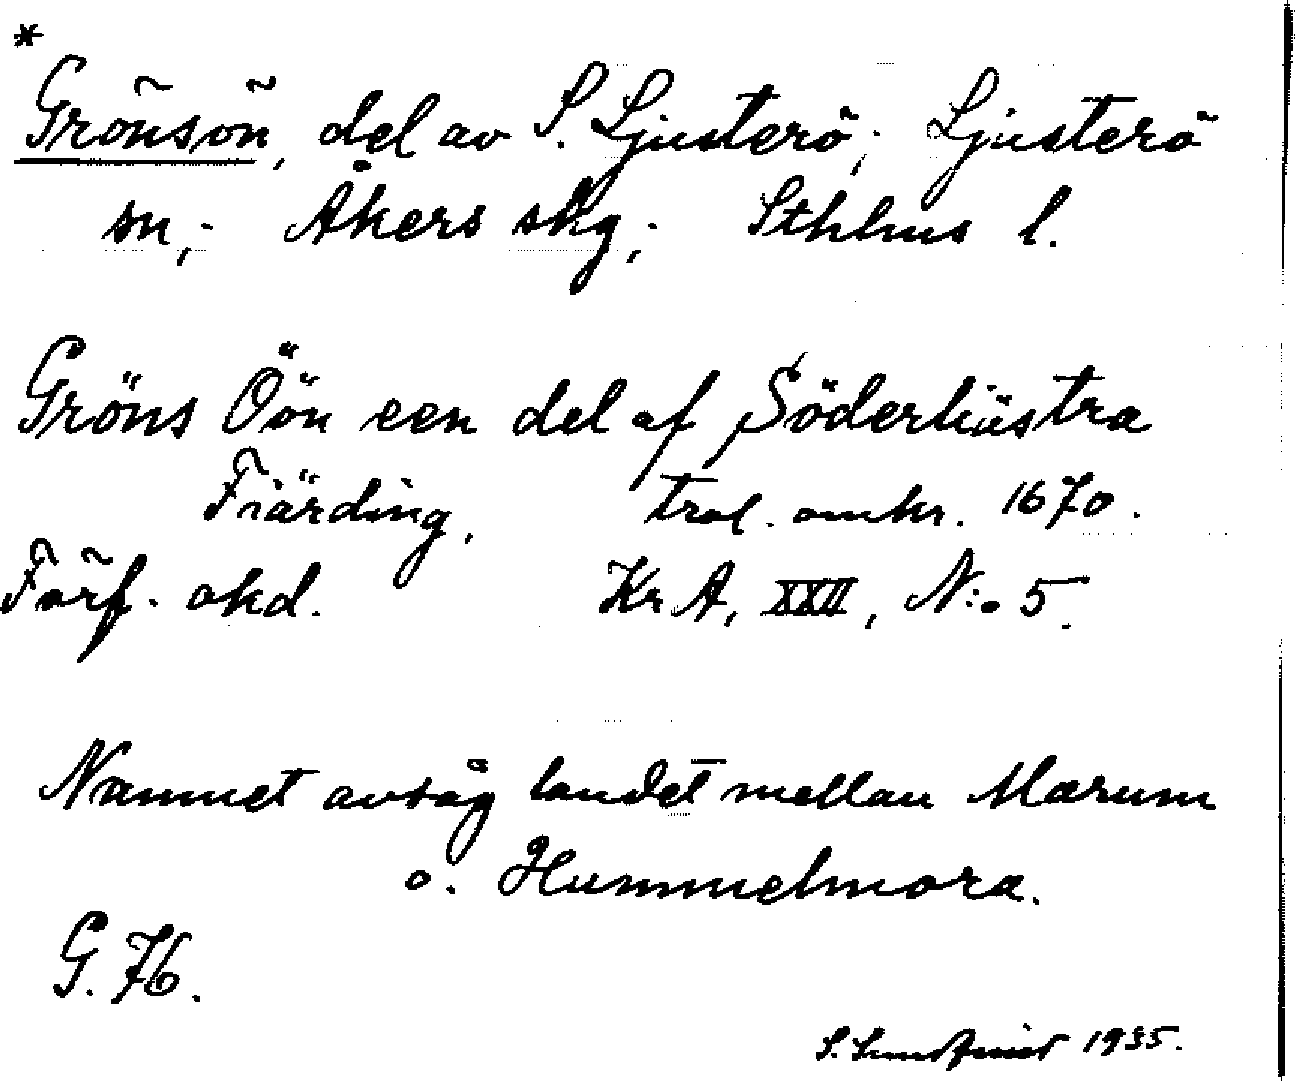 *
Grönsön, del av S. Ljusterö; Ljusterö
sn; Åkers skg; Sthlms l.
Gröns Öön een del af Söderliüstra
Fiärding, trol. omkr. 1670.
Förf. okd. Kr A, XXII, N:o 5.
Namnet avsåg landet mellan Marum
o. Hummelmora.
G. 76.
S. 1935.